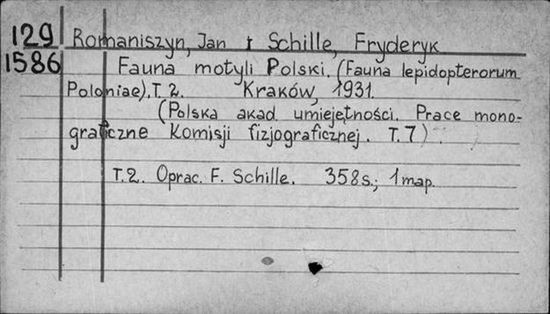 129 Romaniszyn, Jan i Schille, Fryderyk
1586 Fauna motyli Polski. (Fauna lepidopterorum
Poloniae). T. 2. Kraków, 1931.
(Polska akad. umiejętności. Prace mono-
graficzne Komisji fizjograficznej. T. 7).
T. 2. Oprac. F. Schille. 358 s.; 1 map.